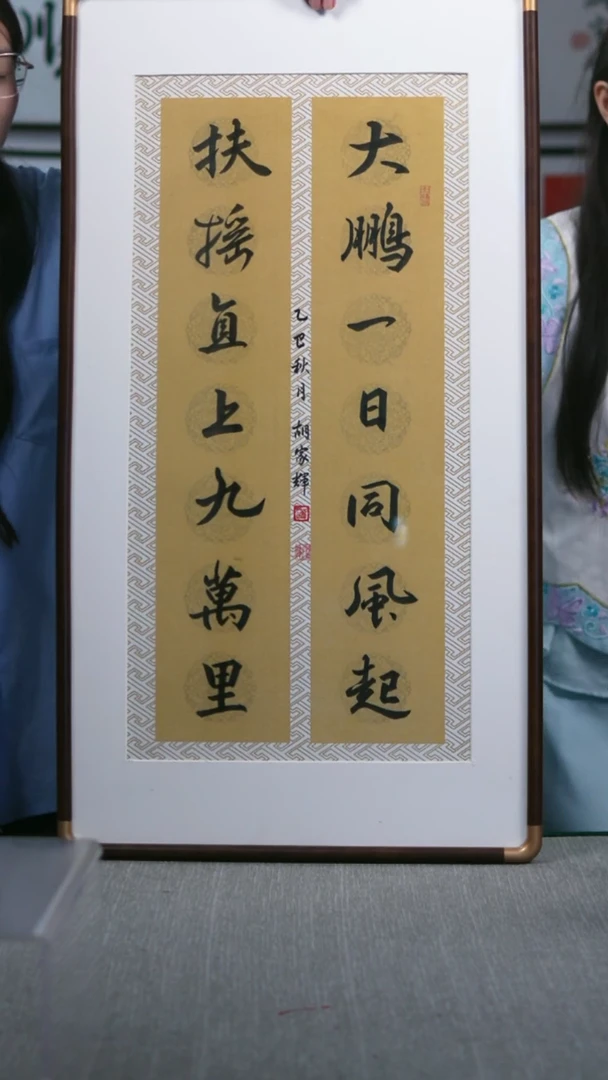 大鵬一日同風起
扶摇直上九萬里
乙巳秋月 胡家輝